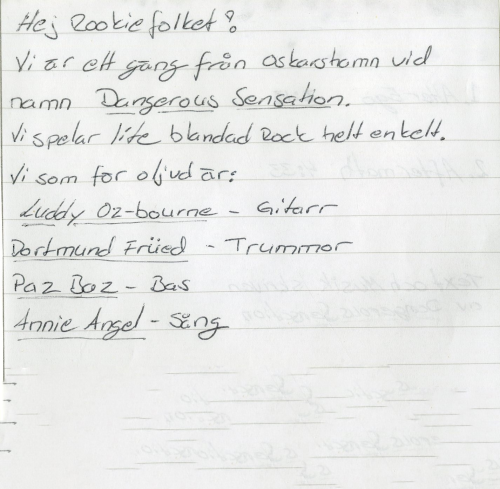 Hej Rookiefolket?
Vi är ett gäng från Oskarshamn vid
namn Dangerous Sensation.
Vi spelar lite blandad Rock helt enkelt.
Vi som för oljud är:
Luddy Oz-bourne - Gitarr
Dortmund Früed - Trummor
Paz Boz - Bas
Annie Angel - Sång